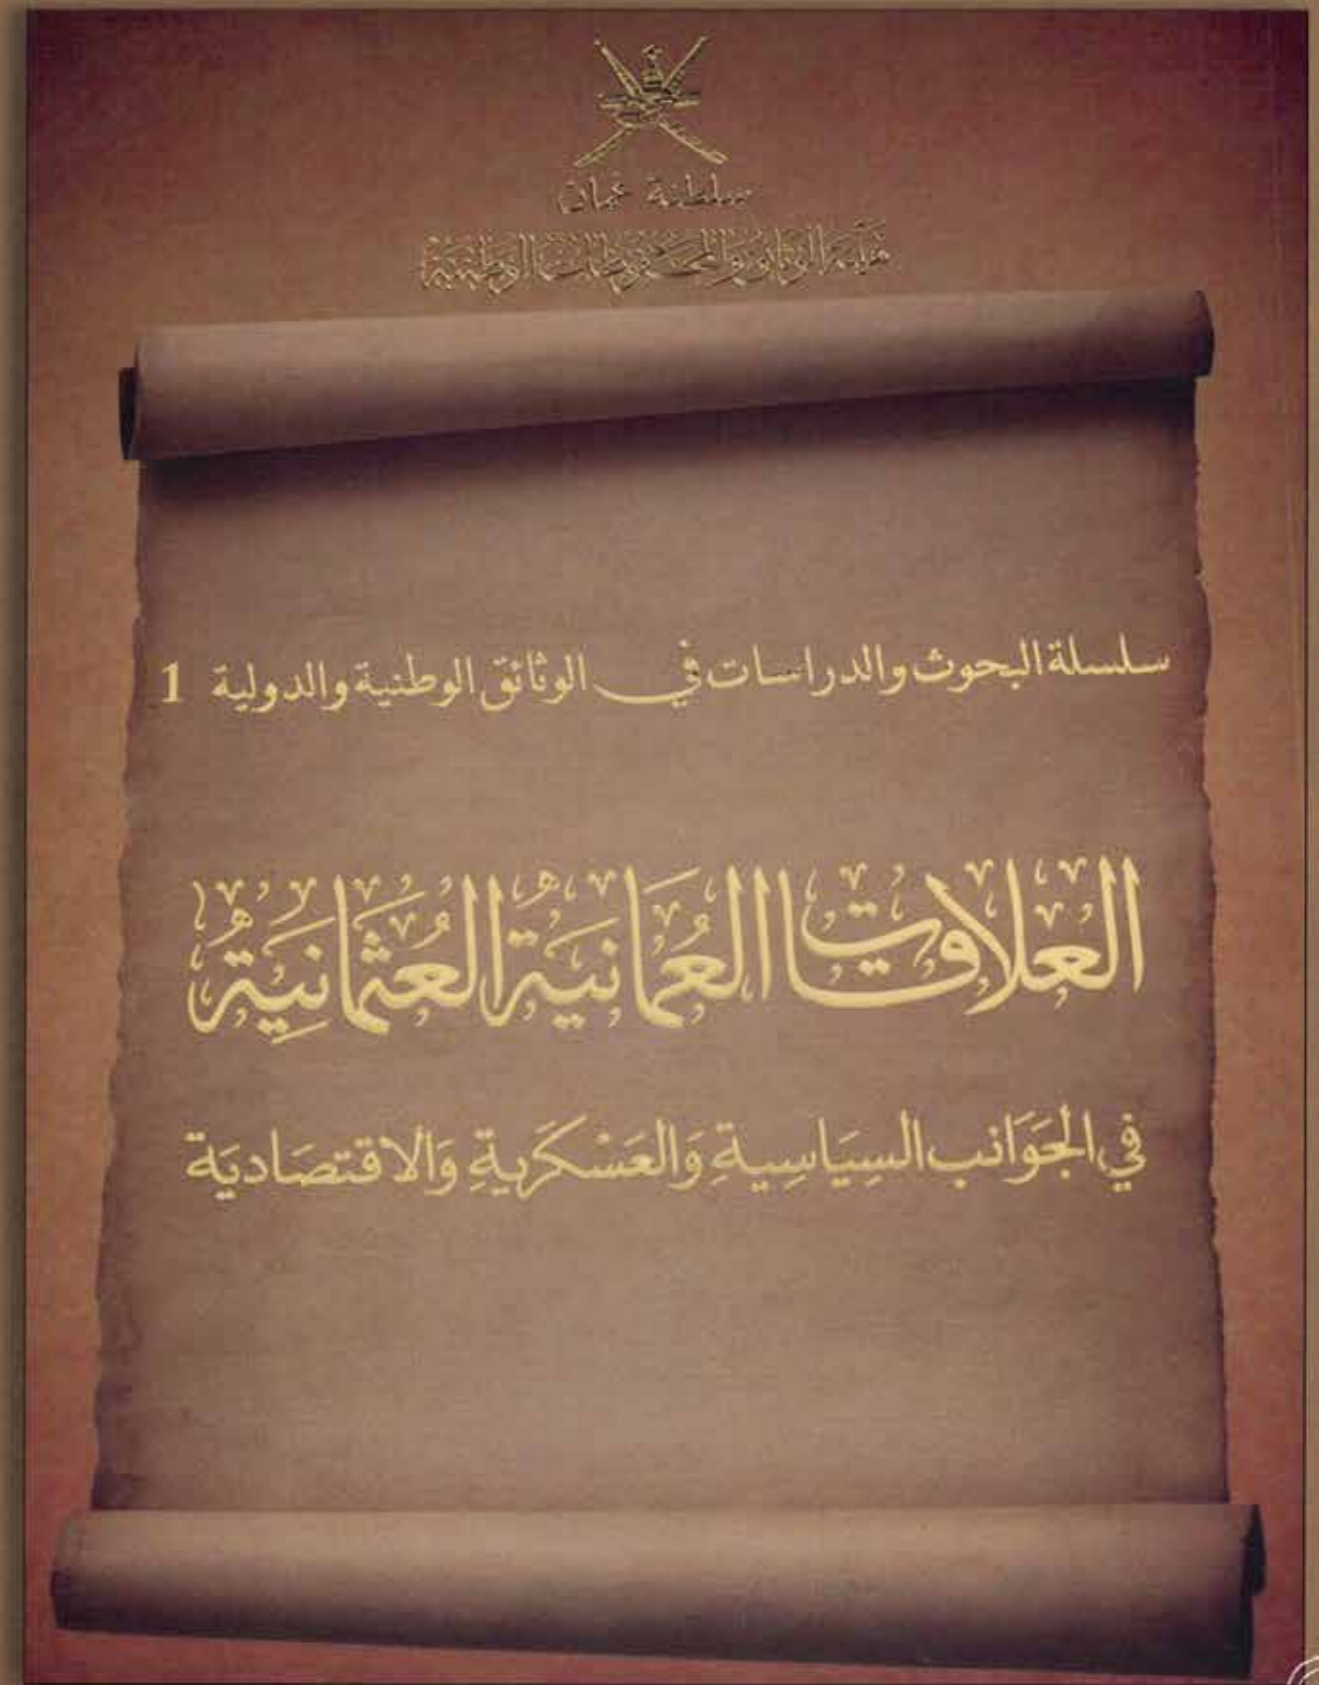 سلطنة عمان
هيئة الوثائق والمحفوظات الوطنية
سلسلة البحوث والدراسات في الوثائق الوطنية والدولية 1
العَلاقات العُمانية العُثمانيِة
في الجَوَانب السِيَاسِيةِ وَالعَسْكَريةِ وَالاقتصَاديَة